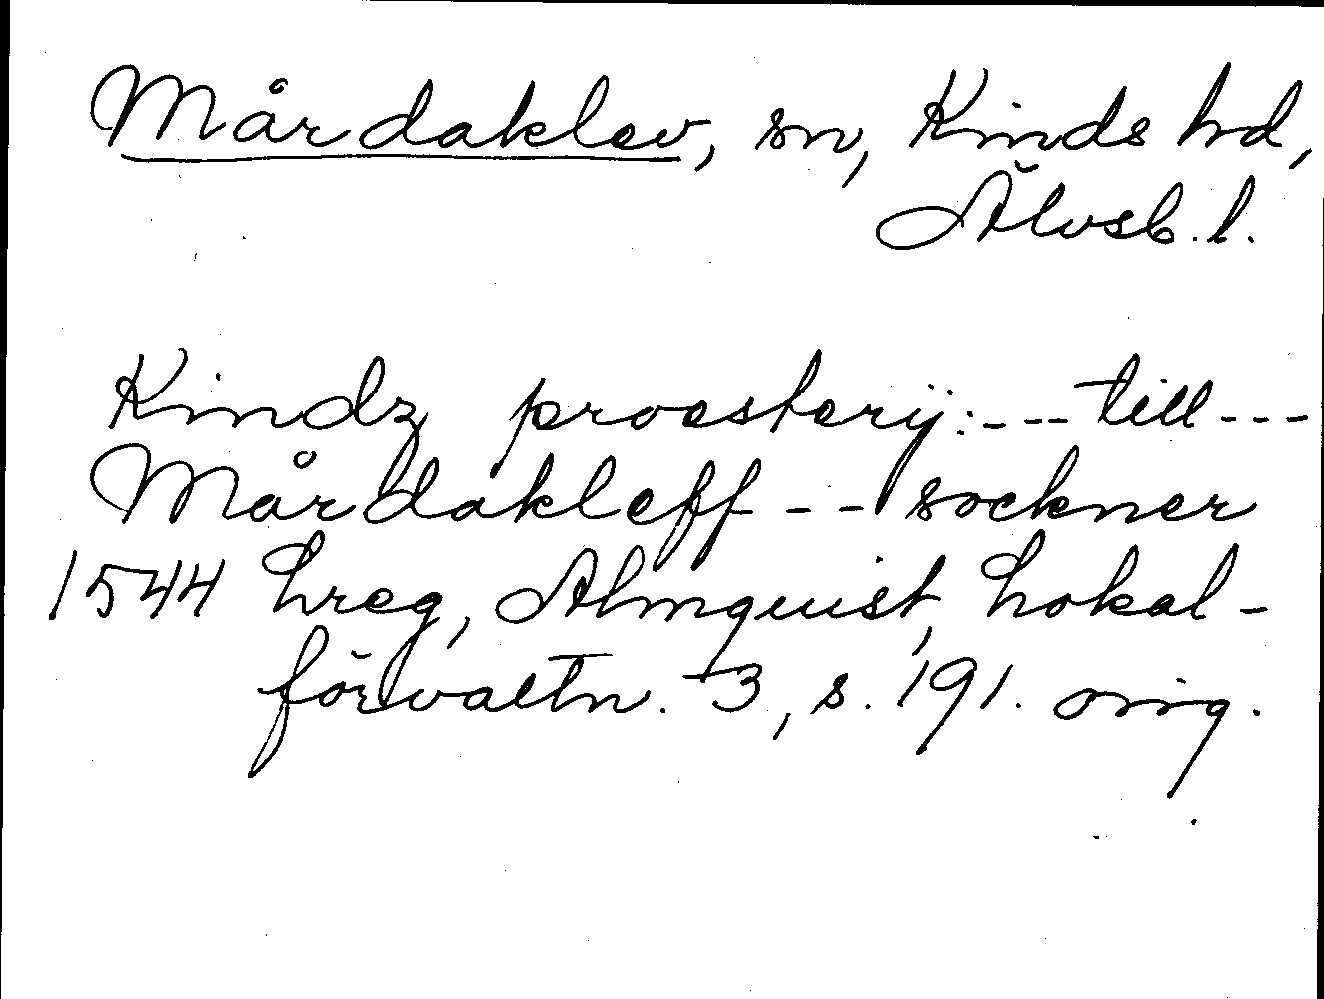 Mårdaklev, sn, Kinds hd,
Älvsb. l.
Kindz proasterij: --- till ---
Mårdakleff --- sockner
1544 Lreg, Almquist, Lokal-
förvaltn. 3, s. 191. orig.